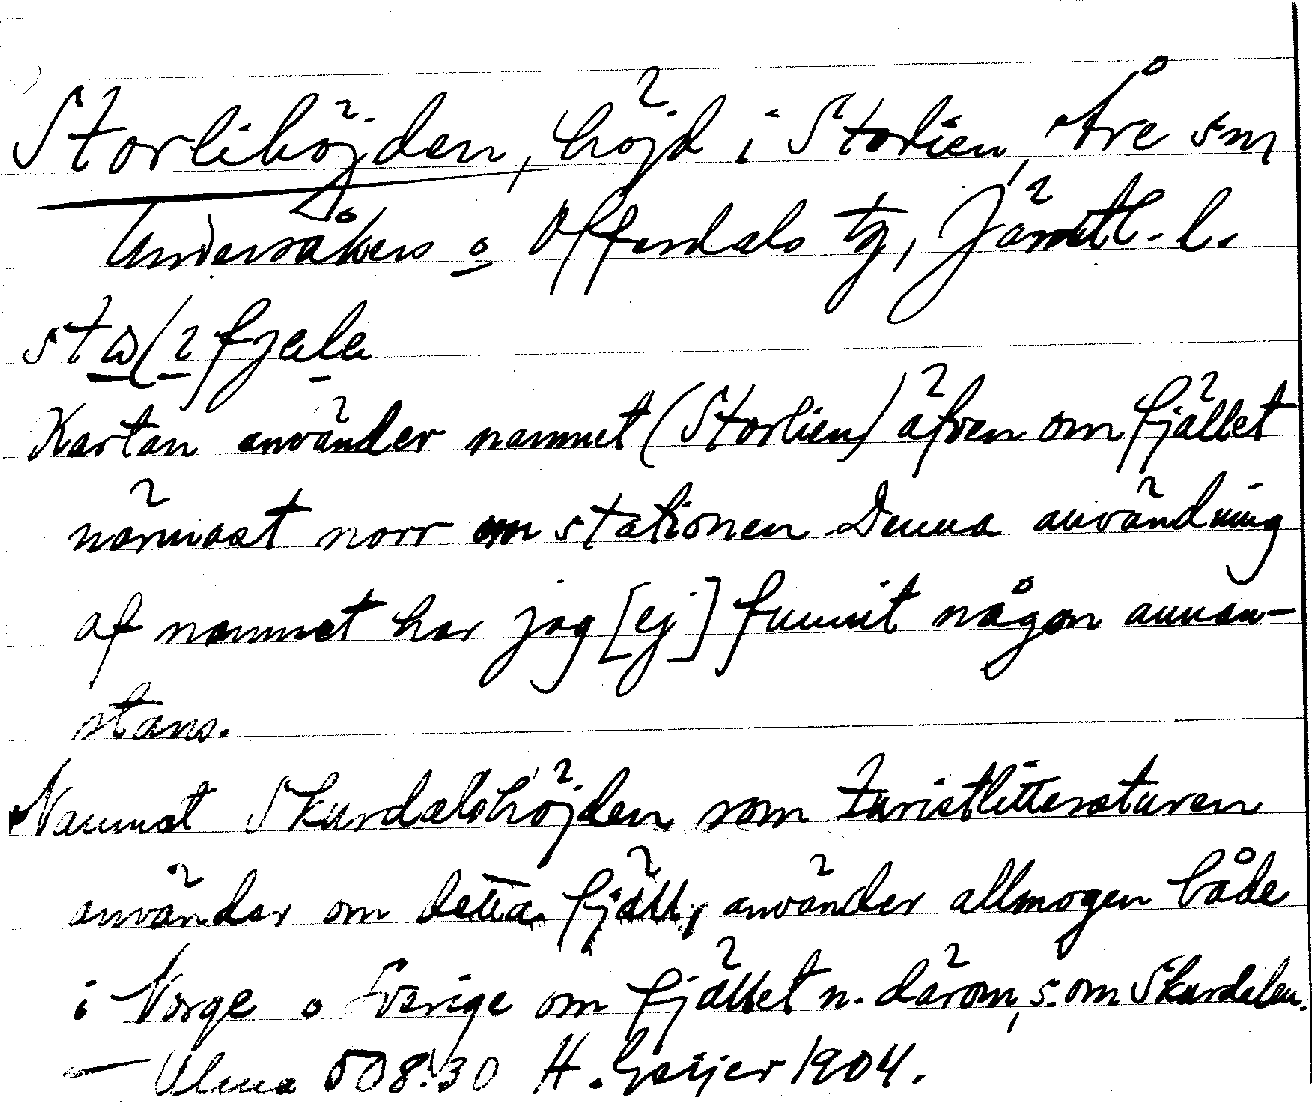 Storlihöjden, höjd i Storlien, Åre sn
Undersåkers o Offerdals tg, Jämtl. l.
fjæla
Kartan använder namnet (Storlien) äfven om fjället
närmast norr om stationen Denna användning
af namnet har jag [ej] funnit någon annan-
stans.
Namnet Skurdalshöjden som turistlitteraturen
använder om detta fjäll, använder allmogen både
i Norge o Sverige om fjället n. därom, s. om Skurdalen.
— Ulma 508:30 H. Geijer 1904.